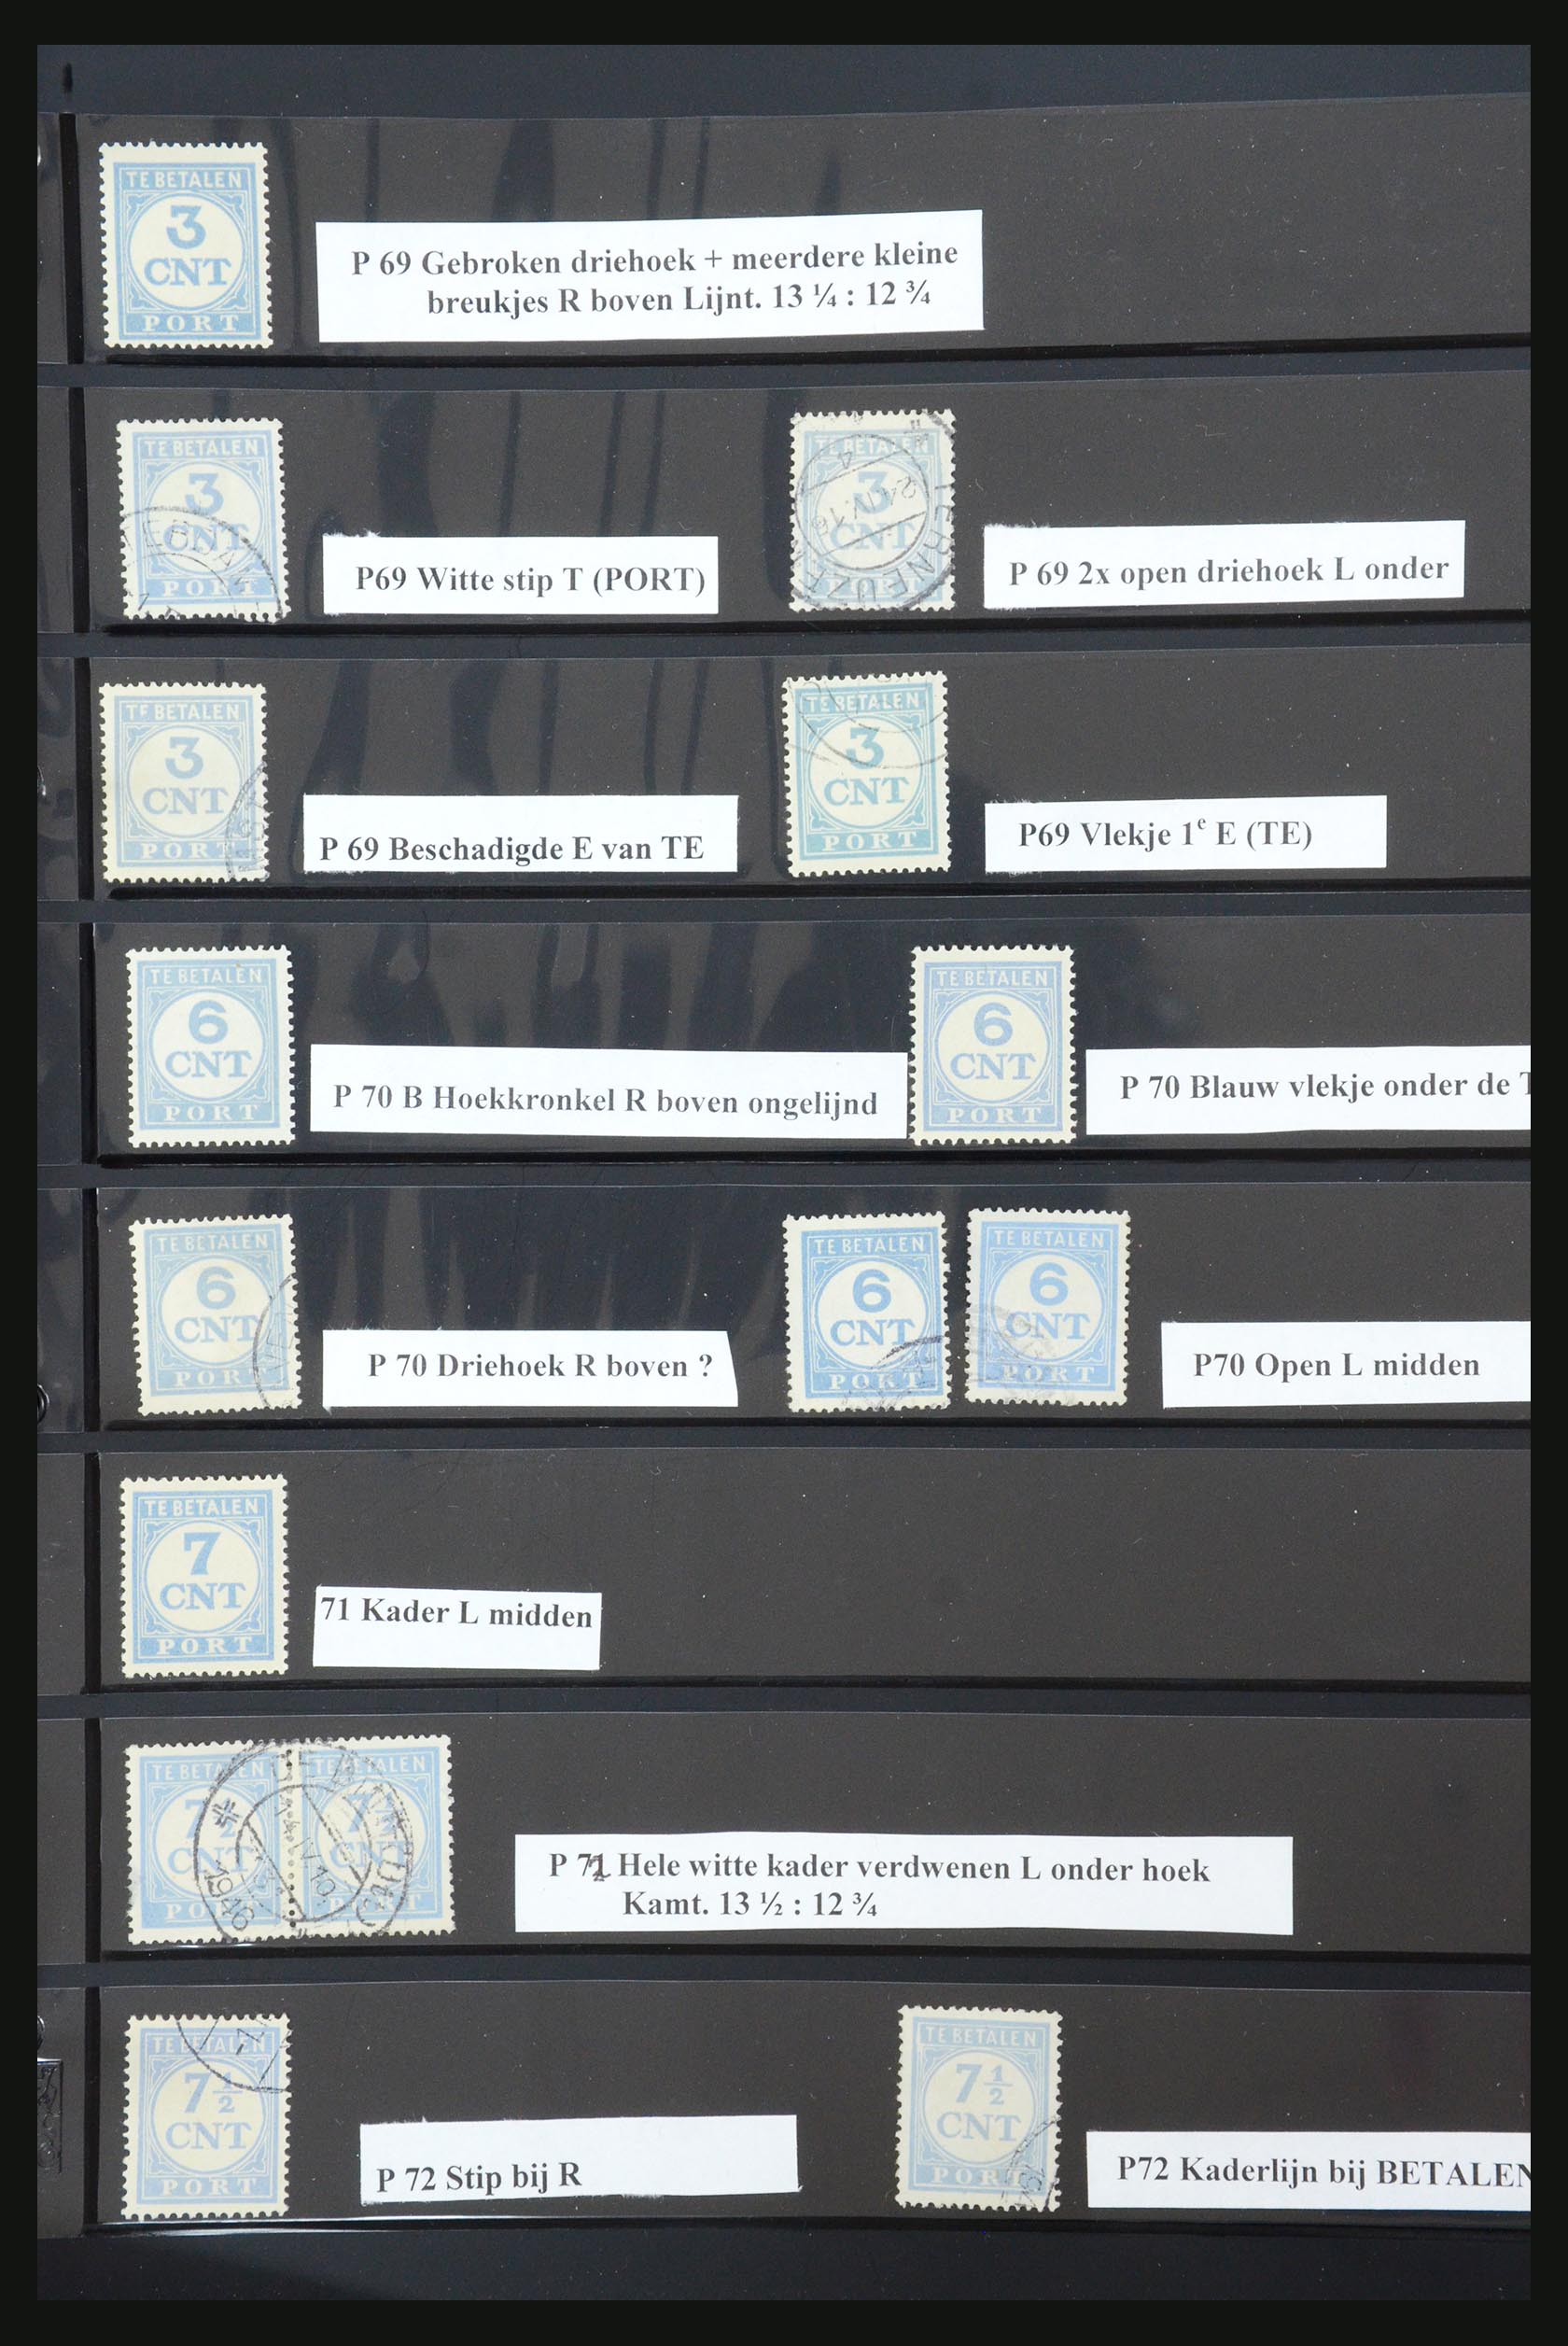 TE BETALEN
3
CNT
PORT
P 69 Gebroken driehoek + meerdere kleine
breukjes R boven Lijnt. 13 ¼ : 12 ¾
TE BETALEN
3
CNT
PORT
P69 Witte stip T (PORT)
TE BETALEN
3
CNT
PORT
TERNEUZEN
P 69 2x open driehoek L onder
TE BETALEN
3
CNT
PORT
P 69 Beschadigde E van TE
TE BETALEN
3
CNT
PORT
P69 Vlekje 1e E (TE)
TE BETALEN
6
CNT
PORT
P 70 B Hoekkronkel R boven ongelijnd
TE BETALEN
6
CNT
PORT
P 70 Blauw vlekje onder de T
TE BETALEN
6
CNT
PORT
P 70 Driehoek R boven ?
TE BETALEN
6
CNT
PORT
TE BETALEN
6
CNT
PORT
P70 Open L midden
TE BETALEN
7
CNT
PORT
71 Kader L midden
TE BETALEN
7½
CNT
PORT
TE BETALEN
7½
CNT
PORT
1946
P 72 Hele witte kader verdwenen L onder hoek
Kamt. 13 ½ : 12 ¾
TE BETALEN
7½
CNT
PORT
P 72 Stip bij R
TE BETALEN
7½
CNT
PORT
P72 Kaderlijn bij BETALEN